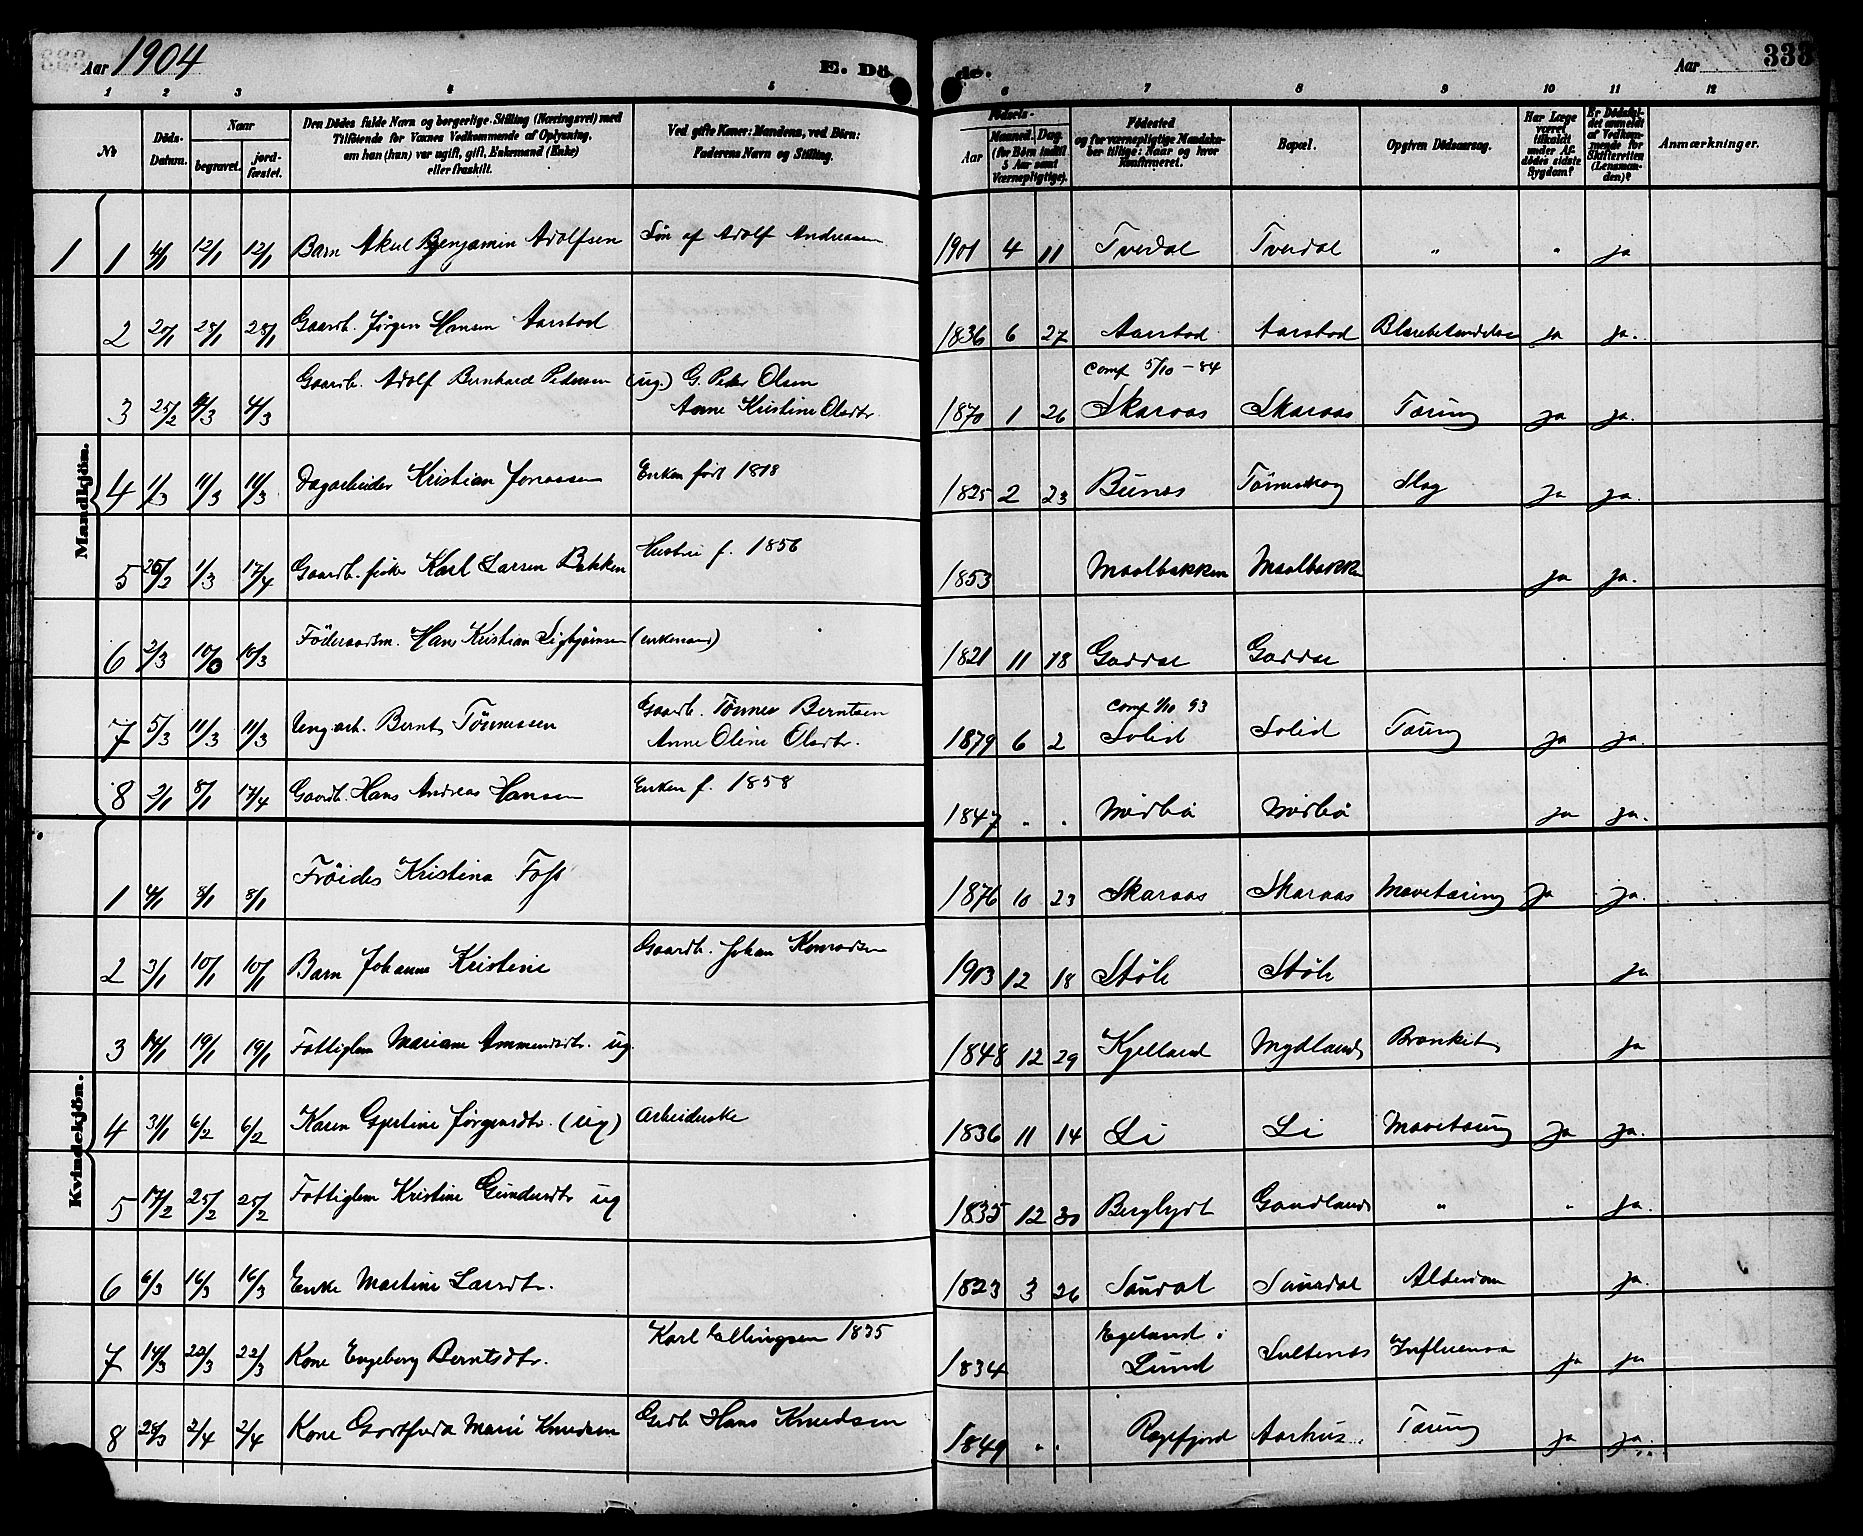 Aar 1904
E. Dö
de.
Aar
333
1 2 3 4 5 6 7 8 9 10 11 12
№
Döds-Datum.
Naar
begravet.
jord-fæstet.
Den Dödes fulde Navn og borgerlige Stilling (Næringsvei) med
Tilföiende for Voxnes Vedkommende af Oplysning,
om han (hun) var ugift, gift, Enkemand (Enke)
eller fraskilt.
Ved gifte Koner: Mandens, ved Börn:
Faderens Navn og Stilling.
Födsels-
Aar
Maaned. Dag.
(for Börn indtil
5 Aar samt
Værnepligtige).
Födested
og for værnepligtige Mandska-
ber tillige: Naar og hvor
konfirmeret.
Bopæl.
Opgiven Dödsaarsag.
Har Læge
været
tilkaldt
under Af-
dödes sidste
Sygdom?
Er Dödsfal-
det anmeldt
af Vedkom-
mende for
Skifteretten
(Lensman-
den)?
Anmærkninger.
Mandkjön.
1 1 4/1 12/1 12/1 Barn Benjamin Adolfsen Sön af Adolf Andreasen 1901 4 11 Tverdal Tverdal " " ja
2 20/1 28/1 28/1 Gaardb. Jørgen Hansen Aarstad 1836 6 27 Aarstad Aarstad ja ja.
3 25/2 4/3 4/3 Gaardb. Adolf Bernhard Pedersen (ug.) G. Peder Olsen
Anne Kristine Olsdtr. 1870 1 26 conf 5/10 - 84
Skaraas Skaraas Tæring ja ja.
4 1/3 11/3 11/3 Dagarbeider Kristian Jonassen Enken født 1818 1825 2 23 Bunes Slag ja ja.
5 26/2 1/3 17/4 Gaardb. fisker Karl Larsen Bakken Hustru f. 1856 1853 Maalbakken Maalbakken ja ja.
6 2/3 10/3 Föderaadsm. Hans Kristian Sigbjørnsen (enkemand) 1821 11 18 Gaddse Gaddse
7 5/3 11/3 11/3 Ung arb. Bernt Tönnessen Gaardb. Tønnes Berntsen
Anne Oline Olsdtr. 1879 6 2 conf 1/10 93
Solid Solid Tæring ja ja.
8 2/1 8/1 17/4 Gaardb. Hans Andreas Hansen Enken f. 1858 1847 " " Mydbö Mydbö ja ja.
Kvindekjön.
1 4/1 8/1 8/1 Kristina 1876 10 23 Skaraas Skaraas Mavetæring ja ja.
2 3/1 10/1 10/1 Barn Johanne Kristine Gaardb. Johan Konradsen 1903 12 18 Støle Støle ja
3 14/1 19/1 19/1 Fattiglem Mariane Ammundsdtr. ug. 1848 12 29 Kjelland Mydland Bronkit ja
4 31/1 6/2 6/2 Karen Gjertine Jørgensdtr. (ug) Arbeiderske 1836 11 14 Li Li Mavetæring ja ja.
5 17/2 25/2 25/2 Fattiglem Kristine Gundersdtr ug 1835 12 30 Berglydt Gandland " " ja.
6 6/3 16/3 16/3 Enke Martine Larsdtr. 1823 3 26 Saurdal Saurdal Alderdom ja.
7 14/3 22/3 22/3 Kone Engeborg Berntsdtr. Karl Ellingsen 1835 1834 Egeland i
Lund Sultenes Influensa ja ja
8 28/3 2/4 2/4 Kone Gotfreda Marie Knudsen Grdb Hans Knudsen 1849 " " Ragefjord Aarhus. Tæring ja ja.